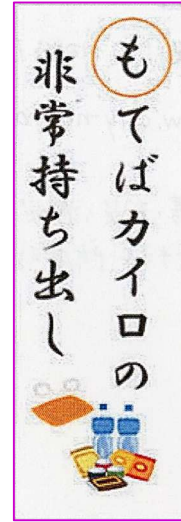 もてばカイロの
非常持ち出し